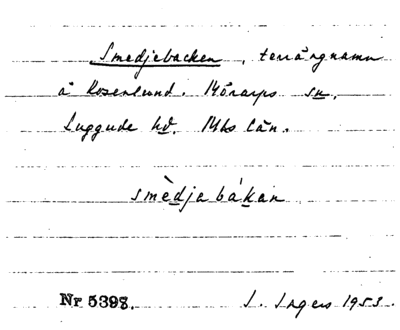 Smedjebacken, terrängnamn
å Rosenlund. Mörarps sn.
Luggude hd. Mbs län.
smèdjabákan
Nr 5398. I. Ingers 1953.